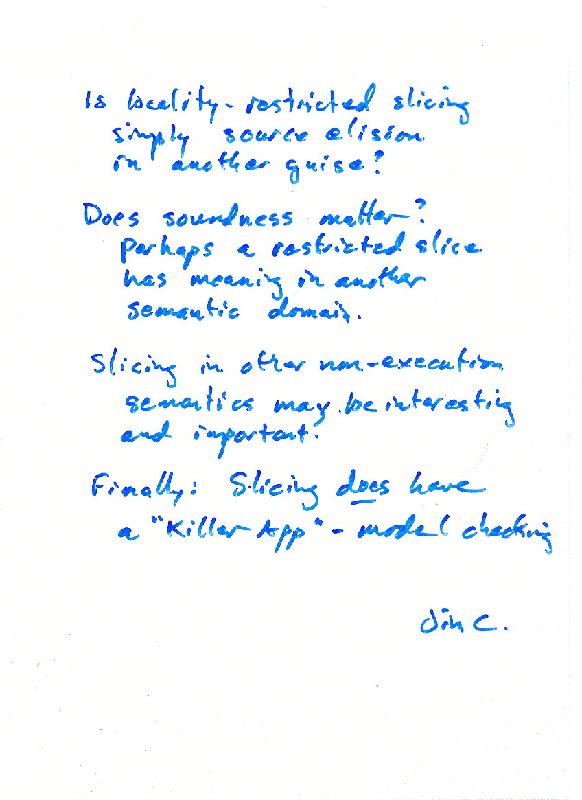 Is locality-restricted slicing
simply source elision
in another guise?
Does soundness matter?
Perhaps a restricted slice
has meaning in another
semantic domain.
Slicing in other non-execution
semantics may be interesting
and important.
Finally: Slicing does have
a "Killer App" - model checking
Jim C.